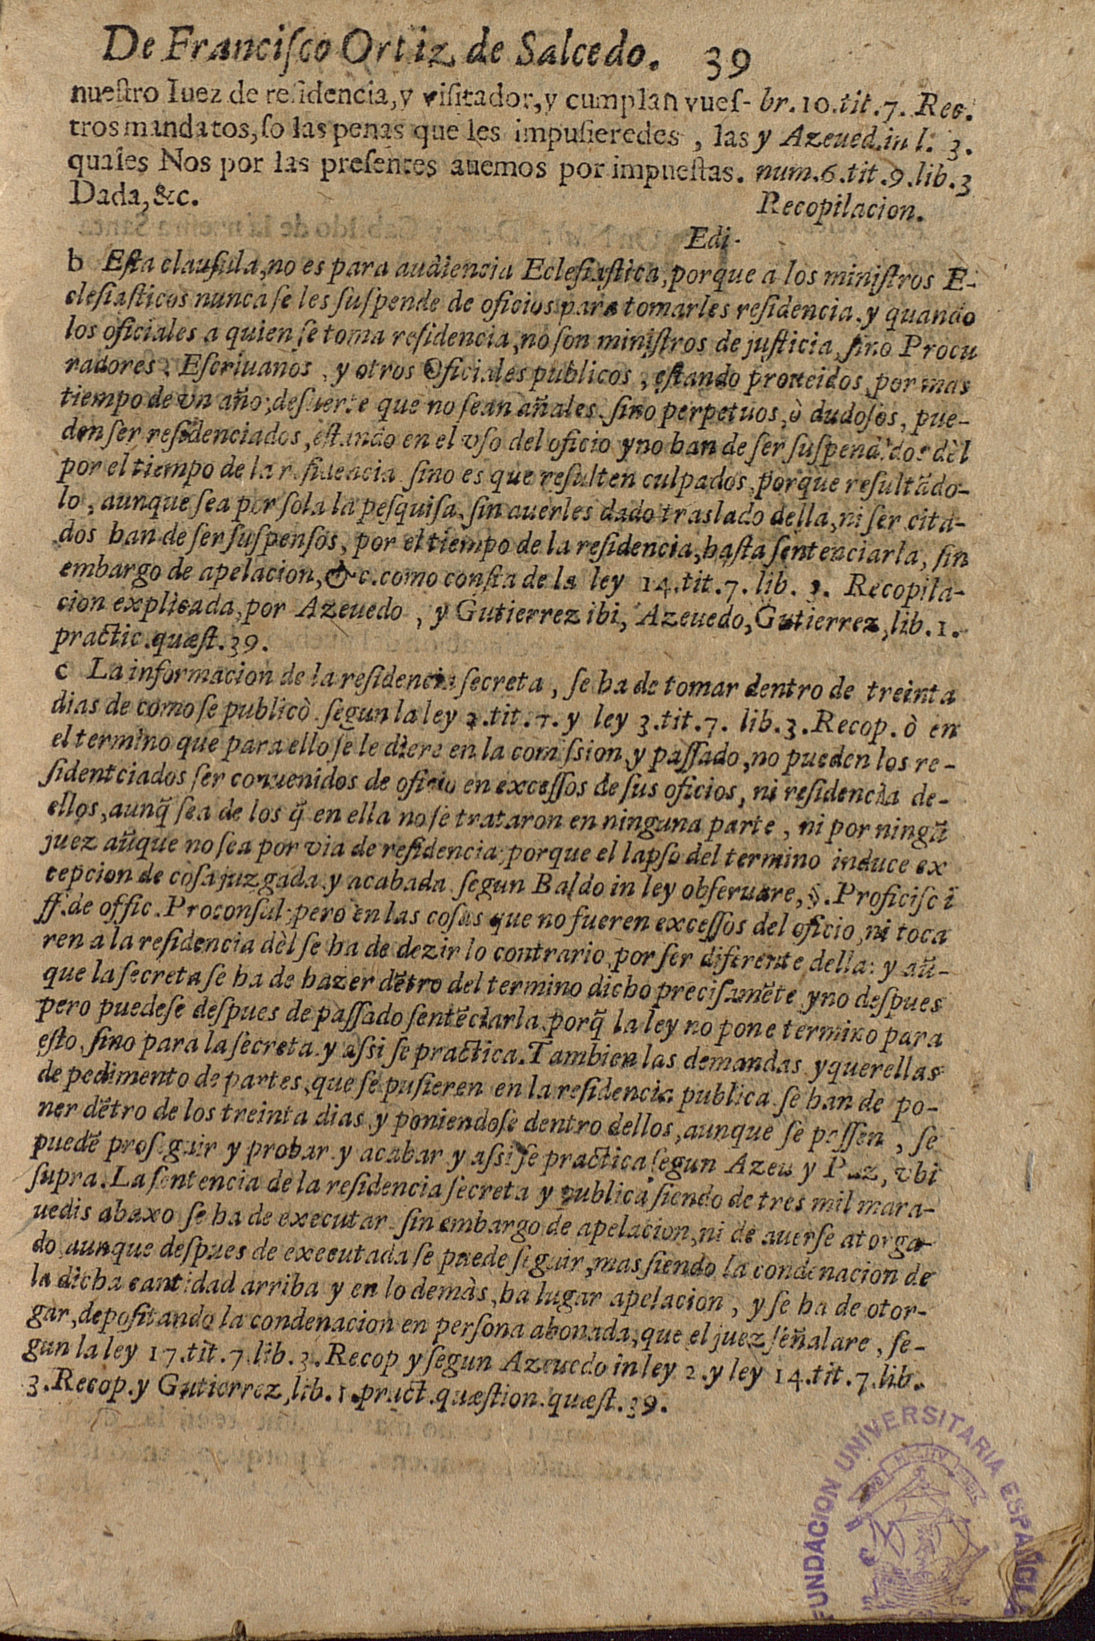 De Franciſco Ortiz de Salcedo. 39
nueſtro Iuez de reſidencia, y viſitador, y cumplan vueſ-
tros mandatos, ſo las penas que les impuſieredes, las
quales Nos por las preſentes auemos por impueſtas.
Dada, &c.
br. 10. tit. 7. Rec.
y Azeued. in l. 3.
num. 6. tit. 9. lib. 3
Recopilacion.
Edi-
b Eſta clauſula, no es para audiencia Ecleſiaſtica, porque a los miniſtros E-
cleſiaſticos nunca ſe les ſuſpende de oficios para tomarles reſidencia. y quando
los oficiales a quien ſe toma reſidencia, no ſon miniſtros de juſticia, ſino Procu
radores, Eſcriuanos, y otros Oficiales publicos, eſtando proueidos, por mas
tiempo de vn año; deſuerte que no ſean añales, ſino perpetuos, ò dudoſos, pue-
den ſer reſidenciados, eſtando en el vſo del oficio y no han de ſer ſuſpendidos dèl
por el tiempo de la reſidencia ſino es que reſulten culpados, porque reſultãdo-
lo, aunque ſea por ſola la peſquiſa, ſin auerles dado traslado della, ni ſer cita-
dos han de ſer ſuſpenſos, por el tiempo de la reſidencia, haſta ſentenciarla, ſin
embargo de apelacion, &c. como conſta de la ley 14. tit. 7. lib. 3. Recopila-
cion explicada, por Azeuedo, y Gutierrez ibi, Azeuedo, Gutierrez, lib. 1.
practic. quæſt. 39.
c La informacion de la reſidencia ſecreta, ſe ha de tomar dentro de treinta
dias de como ſe publicò ſegun la ley 2. tit. 7. y ley 3. tit. 7. lib. 3. Recop. ò en
el termino que para ello ſe le diere en la comiſsion y paſſado, no pueden los re-
ſidentciados ſer conuenidos de oficio en exceſſos de ſus oficios, ni reſidencia de-
ellos, aunq̃ ſea de los q̃ en ella no ſe trataron en ninguna parte, ni por ningũ
juez aũque no ſea por via de reſidencia: porque el lapſo del termino induce ex
cepcion de coſa juzgada, y acabada ſegun Baldo in ley obſeruare, §. Proficiſc ĩ
ff. de offic. Proconſul; pero en las coſas que no fueren exceſſos del oficio, ni toca
ren a la reſidencia dèl ſe ha de dezir lo contrario, por ſer diferente della: y aũ-
que la ſecreta ſe ha de hazer dẽtro del termino dicho preciſamẽte y no deſpues
pero puedeſe deſpues de paſſado ſentẽciarla, porq̃ la ley no pone termino para
eſto, ſino para la ſecreta y aſsi ſe practica. Tambien las demandas y querellas
de pedimento de partes, que ſe puſieren en la reſidencia publica ſe han de po-
ner dẽtro de los treinta dias y poniendoſe dentro dellos, aunque ſe paſſen, ſe
puedẽ proſeguir y probar y acabar y aſsi ſe practica ſegun Azeu y Paz, vbi
ſupra. La ſentencia de la reſidencia ſecreta y publica ſiendo de tres mil mara-
uedis abaxo ſe ha de executar ſin embargo de apelacion, ni de auerſe atorga-
do, aunque deſpues de executada ſe puede ſeguir, mas ſiendo la condenacion de
la dicha cantidad arriba y en lo demàs, ha lugar apelacion, y ſe ha de otor-
gar, depoſitando la condenacion en perſona abonada, que el juez ſeñalare, ſe-
gun la ley 17. tit. 7. lib. 3. Recop y ſegun Azeuedo in ley 2. y ley 14. tit. 7. lib.
3. Recop. y Gutierrez, lib. 1. pract. quæſtion. quæſt. 39.
FUNDACION UNIVERSITARIA ESPAÑOLA